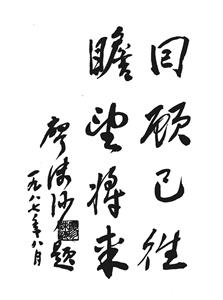 回顾已往
瞻望将来
廖沫沙题
一九八七年八月